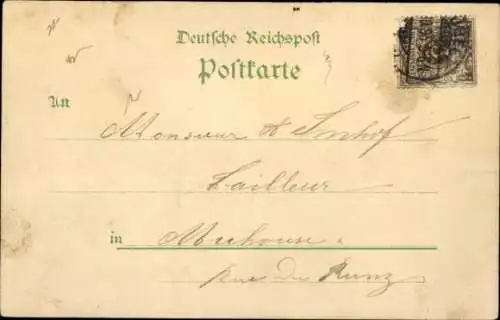 Deutsche Reichspost
Postkarte
An
Monsieur A Imhof
Tailleur
in Mulhouse
rue du Runz